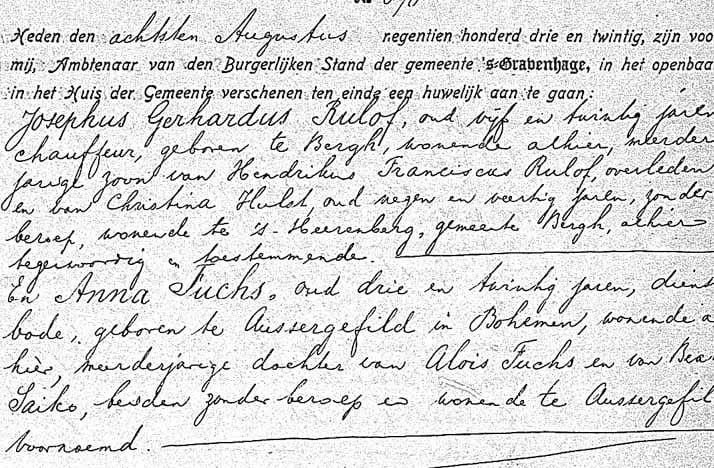 Heden den achtsten Augustus negentien honderd drie en twintig, zijn voo
mij, Ambtenaar van den Burgerlijken Stand der gemeente 's-Gravenhage, in het openbaa
in het Huis der Gemeente verschenen ten einde een huwelijk aan te gaan:
Josephus Gerhardus Rulof, oud vijf en twintig jaren
chauffeur, geboren te Bergh, wonende alhier, meerder
jarige zoon van Hendrikus Franciscus Rulof, overleden
en van Christina Hulst, oud negen en veertig jaren, zonder
beroep, wonende te 's-Heerenberg, gemeente Bergh, alhier
tegenwoordig en toestemmende.
En Anna Fuchs, oud drie en twintig jaren, dienst
bode, geboren te Aussergefild in Bohemen, wonende a
hier, meerderjarige dochter van Alois Fuchs en van Bea
Saiko, beiden zonder beroep en wonende te Aussergefil
voornoemd.